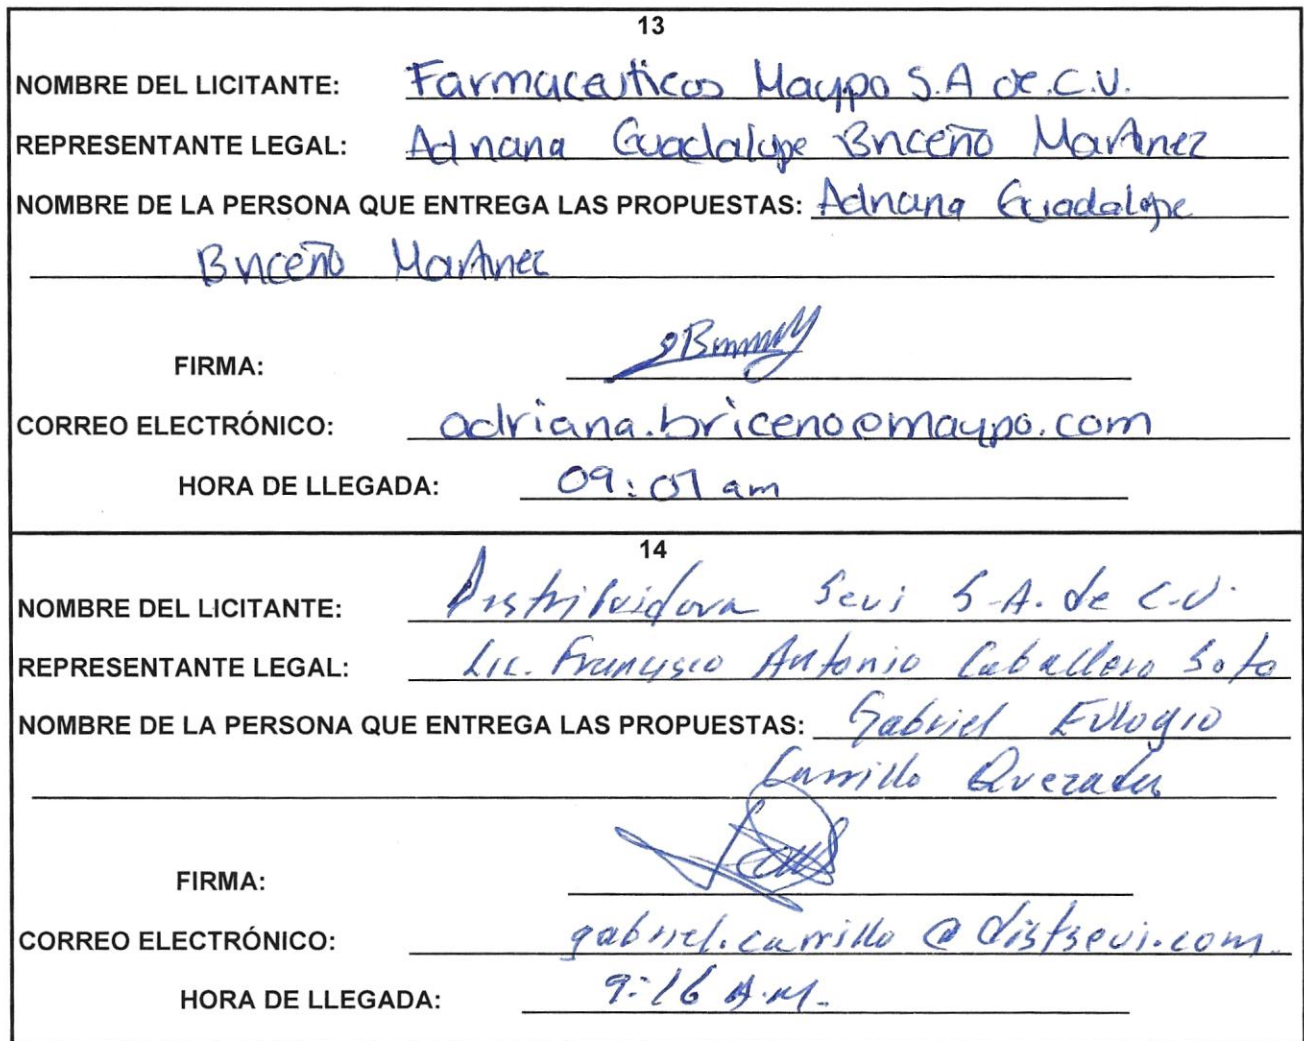 13
NOMBRE DEL LICITANTE: Farmaceuticos Maypo S.A de.C.V.
REPRESENTANTE LEGAL: Adriana Guadalupe Briceño Martinez
NOMBRE DE LA PERSONA QUE ENTREGA LAS PROPUESTAS: Adriana Guadalupe
Briceño Martinez
FIRMA:
CORREO ELECTRÓNICO: adriana.briceno@maypo.com
HORA DE LLEGADA: 09:07 am
14
NOMBRE DEL LICITANTE: Distribuidora Sevi S.A. de C.V.
REPRESENTANTE LEGAL: Lic. Francisco Antonio Caballero Soto
NOMBRE DE LA PERSONA QUE ENTREGA LAS PROPUESTAS: Gabriel Eulogio
Carrillo Quezada
FIRMA:
CORREO ELECTRÓNICO: gabriel.carrillo@distsevi.com
HORA DE LLEGADA: 9:16 A.M.